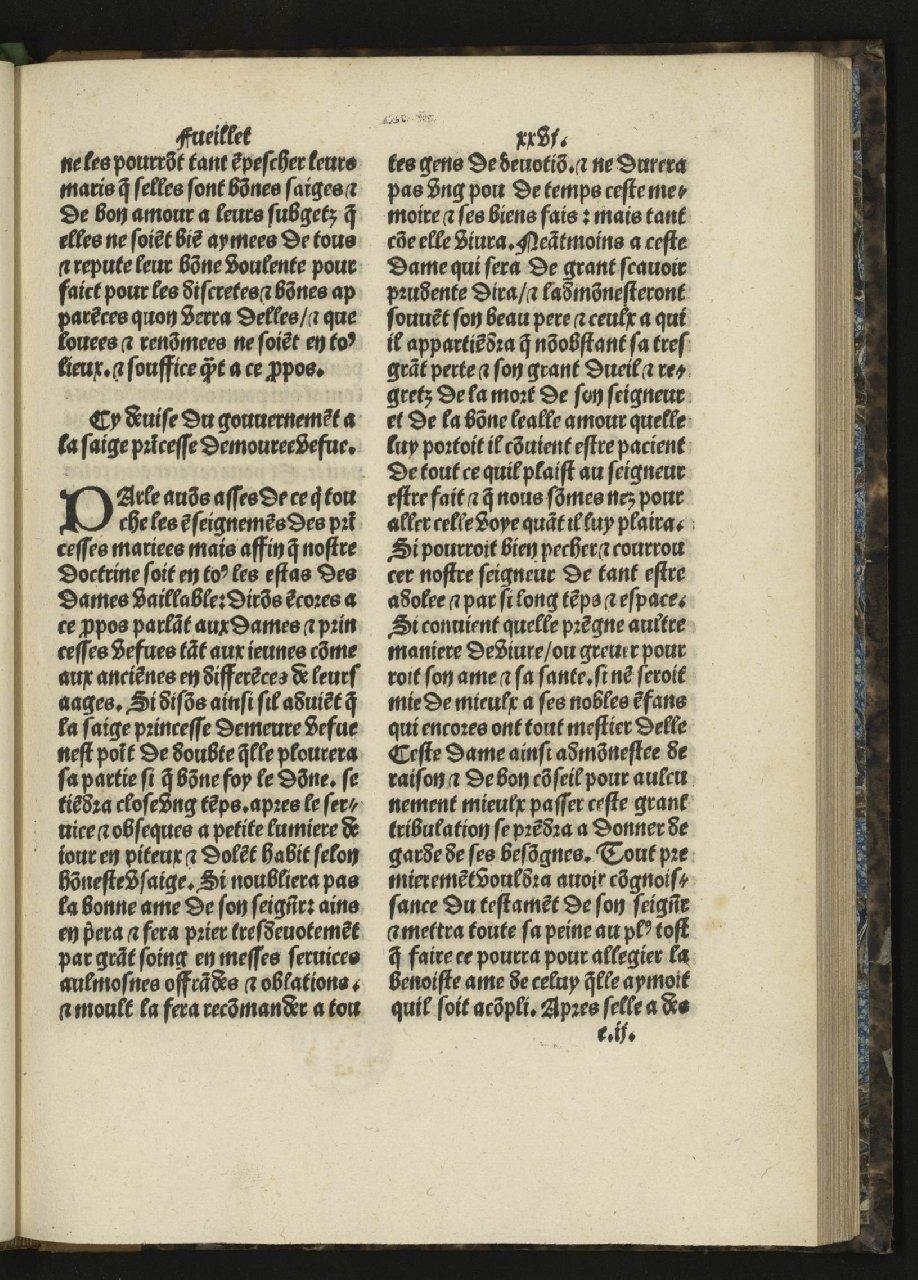 Fueillet
xxvi.
ne les pourrõt tant ẽpescher leurs
maris q̃ selles sont bõnes saiges ⁊
de bon amour a leurs subgetz q̃
elles ne soiẽt biẽ aymees de tous
⁊ repute leur bõne voulente pour
faict pour les discretes ⁊ bõnes ap
parẽces quon verra delles/⁊ que
louees ⁊ renõmees ne soiẽt en toꝰ
lieux. ⁊ souffice q̃t a ce ꝓpos.
Cy deuise du gouuernemẽt a
la saige prĩcesse demouree vefue.
PArle auõs asses de ce q̃ tou
che les ẽseignemẽs des prĩ
cesses mariees mais affin q̃ nostre
doctrine soit en toꝰ les estas des
dames vaillable: dirõs ẽcores a
ce ꝓpos parlãt aux dames ⁊ prin
cesses vefues tãt aux ieunes cõme
aux anciẽnes en differẽces de leurs
aages. Si disõs ainsi sil aduiẽt q̃
la saige princesse demeure vefue
nest poĩt de doubte q̃lle plourera
sa partie si q̃ bõne foy le dõne. se
tiẽdra close vng tẽps. apres le ser-
uice ⁊ obseques a petite lumiere de
iour en piteux ⁊ dolẽt habit selon
hõneste vsaige. Si noubliera pas
la bonne ame de son seigñr: ains
en p̃era ⁊ fera prier tresdeuotemẽt
par grãt soing en messes seruices
aulmosnes offrãdes ⁊ oblations.
⁊ moult la fera recõmander a tou
tes gens de deuotiõ. ⁊ ne durera
pas vng pou de temps ceste me-
moire ⁊ ses biens fais: mais tant
cõe elle viura. Neãtmoins a ceste
dame qui sera de grant scauoir
prudente dira/⁊ ladmõnesteront
souuẽt son beau pere ⁊ ceulx a qui
il appartiẽdra q̃ nõobstant sa tres
grãt perte ⁊ son grant dueil ⁊ re-
gretz de la mort de son seigneur
et de la bõne lealle amour quelle
luy portoit il cõuient estre pacient
de tout ce quil plaist au seigneur
estre fait ⁊ q̃ nous sõmes nez pour
aller celle voye quãt il luy plaira.
Si pourroit bien pecher ⁊ courrou
cer nostre seigneur de tant estre
adolee ⁊ par si long tẽps ⁊ espace.
Si conuient quelle prẽgne aultre
maniere de viure/ou greuer pour
roit son ame ⁊ sa sante. si nẽ seroit
mie de mieulx a ses nobles ẽfans
qui encores ont tout mestier delle
Ceste dame ainsi admõnestee de
raison ⁊ de bon cõseil pour aulcu
nement mieulx passer ceste grant
tribulation se prẽdra a donner de
garde de ses besõgnes. Tout pre
mieremẽt vouldra auoir cõgnois-
sance du testamẽt de son seigñr
⁊ mettra toute sa peine au plꝰ tost
q̃ faire ce pourra pour allegier la
benoiste ame de celuy q̃lle aymoit
quil soit acõpli. Apres selle a des
e.ij.